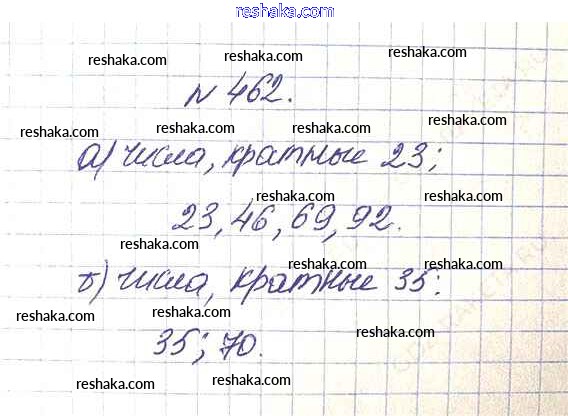 reshaka.com
reshaka.com reshaka.com
reshaka.com
№ 462.
reshaka.com reshaka.com reshaka.com
а) числа, кратные 23;
reshaka.com reshaka.com
23, 46, 69, 92.
reshaka.com
reshaka.com reshaka.com
б) числа, кратные 35:
reshaka.com reshaka.com
35; 70.
reshaka.com
reshaka.com reshaka.com